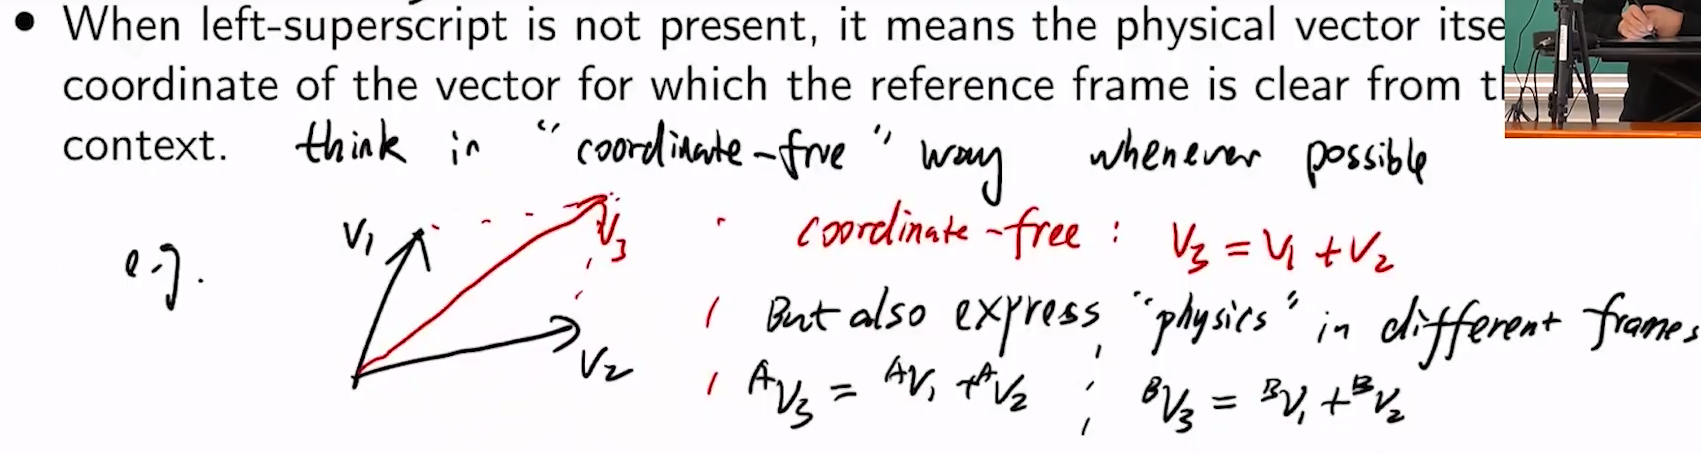 • When left-superscript is not present, it means the physical vector itse
coordinate of the vector for which the reference frame is clear from t
context. think in "coordinate-free" way whenever possible
e.g. V₁ V₃ V₂
· coordinate-free : V₃ = V₁ + V₂
But also express "physics" in different frames
ᴬV₃ = ᴬV₁ + ᴬV₂ ; ᴮV₃ = ᴮV₁ + ᴮV₂